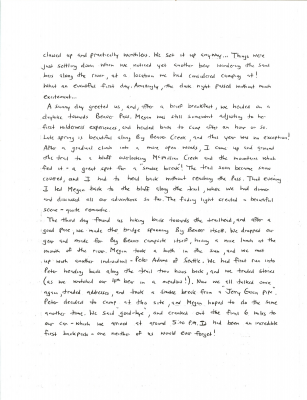 closed up and practically worthless. We set it up anyway... Things were
just settling down when we noticed yet another bear wandering the sand
bars along the river, at a location we had considered camping at!
What an eventful first day. Amazingly, the night passed without much
excitement...
A sunny day greeted us, and, after a brief breakfast, we headed on a
dayhike towards Beaver Pass. Megan was still somewhat adjusting to her
first wilderness experiences, and headed back to camp after an hour or so.
Late spring is beautiful along Big Beaver Creek, and this year was no exception!
After a gradual climb into a more open woods, I came up and around
the trail to a bluff overlooking McMillan Creek and the mountains which
fed it - a great spot for a smoke break! The trail soon became snow
covered, and I had to head back without reaching the Pass. That evening
I led Megan back to the bluff along the trail, where we had dinner
and discussed all our adventures so far. The fading light created a beautiful
scene - quite romantic.
The third day found us hiking back towards the trailhead, and after a
good pace, we made the bridge spanning Big Beaver itself. We dropped our
gear and made for Big Beaver campsite itself, taking a more look at the
mouth of the river. Megan took a bath in the sun and we met
up with another individual - Peter Adams of Seattle. We had first run into
Peter heading back along the trail two hours back, and we traded stories
(as we watched our 4th bear in a meadow!). Now we all talked once
again, traded addresses, and took a smoke break from a Jerry Garcia pipe.
Peter decided to camp at this site, and Megan hoped to do the same
another time. We said goodbye, and cranked out the final 6 miles to
our car - which we arrived at around 5:00 P.M. It had been an incredible
first backpack - one neither of us would ever forget!